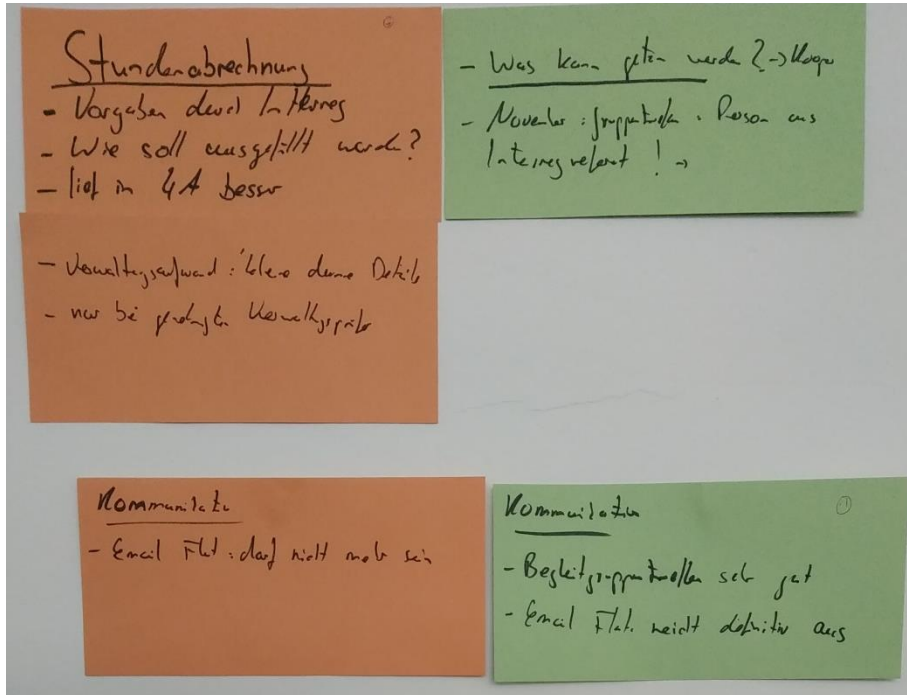 Stundenabrechnung
- Vorgaben durch Interreg
- Wie soll ausgefüllt werden?
- lief in 4A besser
- Verwaltungsaufwand : kleine dumme Details
- nur bei
- Was kann getan werden? ->
- November : Gruppentreffen : Person aus
Interregreferat ! ->
Kommunikation
- Email Flut : darf nicht mehr sein
Kommunikation
- Begleitgruppentreffen sehr gut
- Email Flut definitiv aus